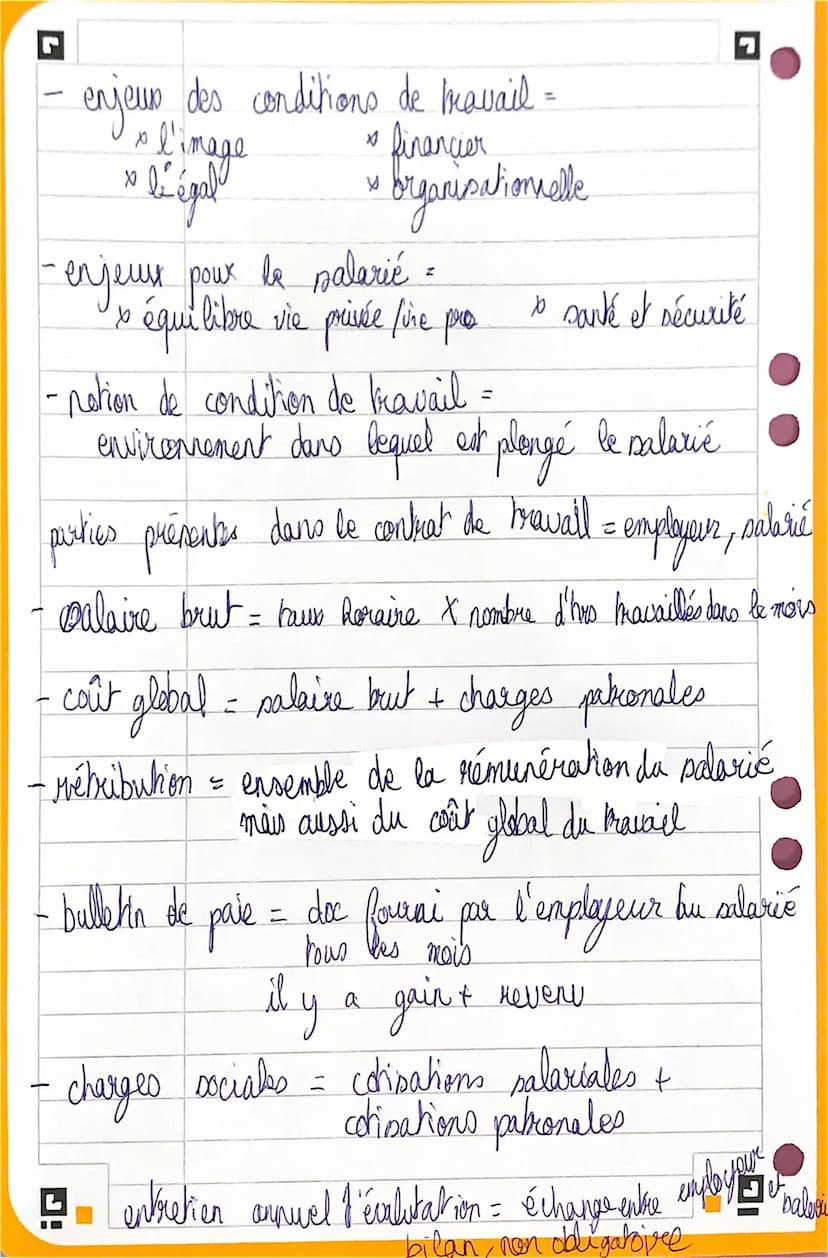 - enjeux des conditions de travail =
x l'image x financier
x légal x organisationnelle
- enjeux pour le salarié =
x équilibre vie privée / vie pro x santé et sécurité
- notion de condition de travail =
environnement dans lequel est plongé le salarié
parties présentes dans le contrat de travail = employeur, salarié
- salaire brut = taux horaire X nombre d'hrs travaillés dans le mois
- coût global = salaire brut + charges patronales
- rétribution = ensemble de la rémunération du salarié
mais aussi du coût global du travail
- bulletin de paie = doc fourni par l'employeur au salarié
tous les mois
il y a gain + revenu
- charges sociales = cotisations salariales +
cotisations patronales
entretien annuel d'évalutation = échange entre employeur et salarié
bilan, non obligatoire